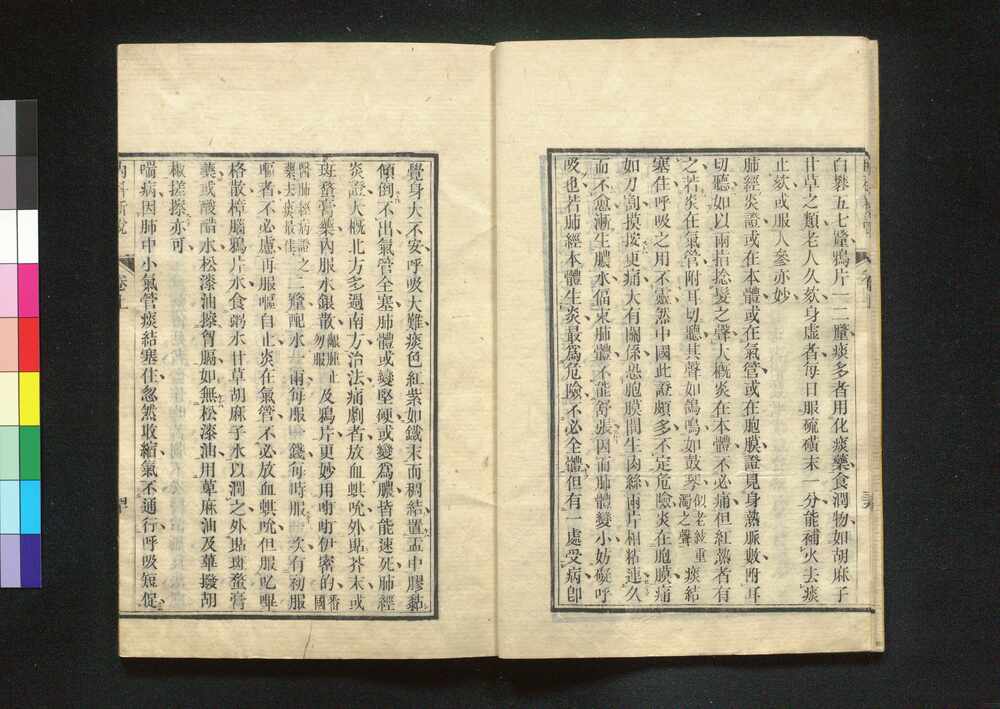 白礬五七釐鴉片一二釐痰多者用化痰藥食潤物如胡麻子
甘草之類老人久欬身虛者每日服硫磺末一分能補火去痰
止欬或服人參亦妙
肺經炎證或在本體或在氣管或在胞膜證見身熱脈數附耳
切聽如以兩指捻髮之聲大概炎在本體不必痛但紅熱者有
之若炎在氣管附耳切聽其聲如鴿鳴如鼓琴似老絃重濁之聲痰結
塞住呼吸之用不靈然中國此證頗多不定危險炎在胞膜痛
如刀割摸按更痛大有關係恐胞膜間生肉絲兩片相粘連久
而不愈漸生膿水偪束肺體不能舒張因而肺體變小妨礙呼
吸也若肺經本體生炎最爲危險不必全體但有一處受病卽
覺身大不安呼吸大難痰色紅紫如鐵末而稠結置盂中膠黏
傾倒不出氣管全塞肺體或變堅硬或變爲膿皆能速死肺經
炎證大概北方多過南方治法痛劇者放血蜞吮外貼芥末或
斑蝥膏藥內服水銀散齦腫勿服止及鴉片更妙用嗬嗬伊密的番國
醫肺經病證之藥去炎最佳二釐配水一兩每服錢每時服次有初服
嘔者不必慮再服嘔自止炎在氣管不必放血蜞吮但服叱嗶
格散樟腦鴉片水食粥水甘草胡麻子水以潤之外貼斑蝥膏
藥或酸醋水松漆油擦胷膈如無松漆油用萆麻油及蓽撥胡
椒搓擦亦可
喘病因肺中小氣管痰結塞住忽然收縮氣不通行呼吸短促
內科新說
卷上